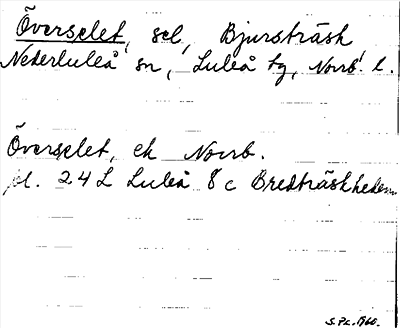 Överselet, sel, Bjursträsk
Nederluleå sn, Luleå tg, Norrb. l.
Överselet, ek Norrb.
bl. 24 L Luleå 8c Bredträskheden
S.Pc. 1960.